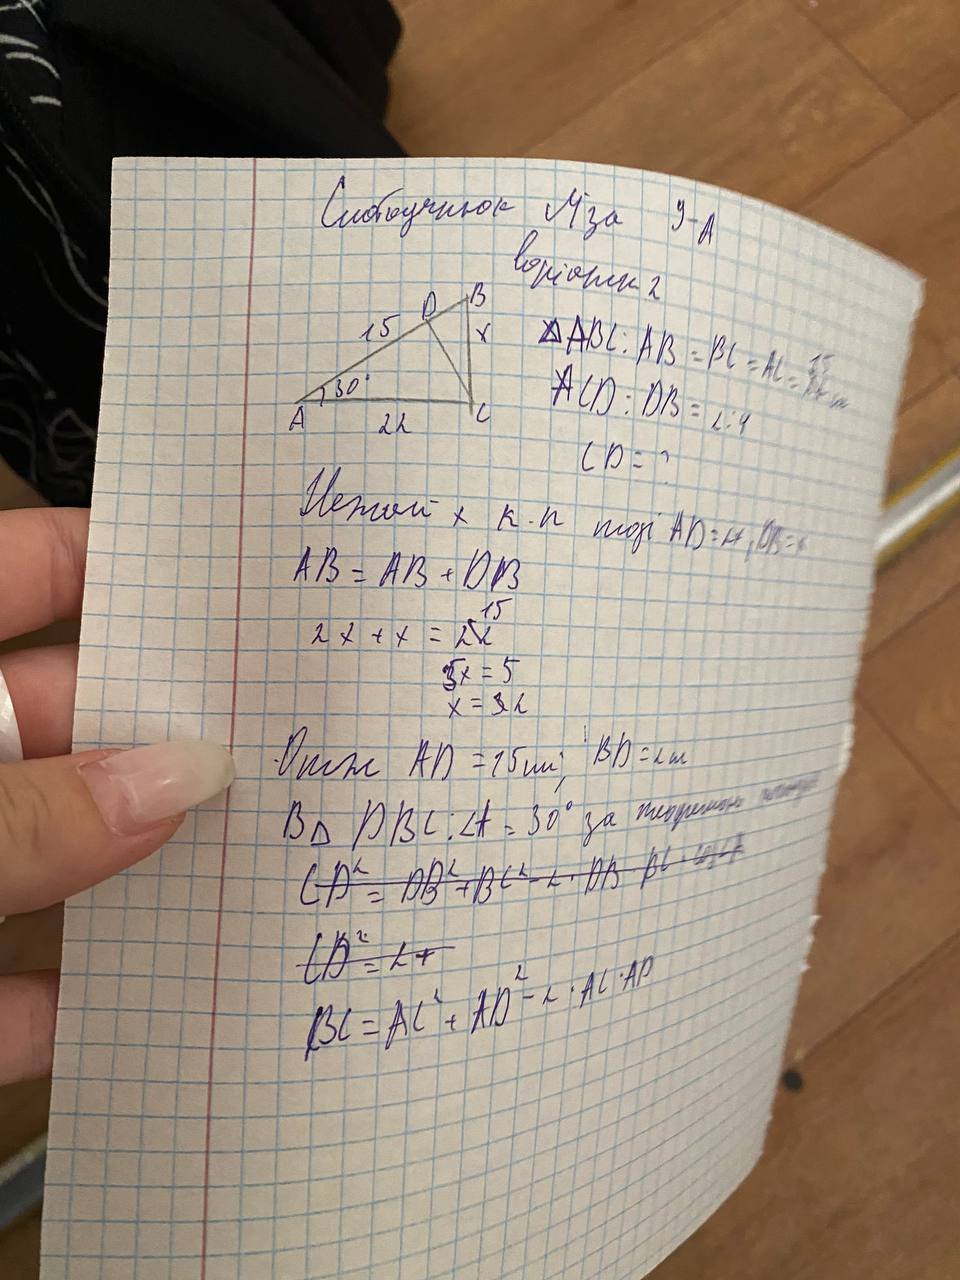 Ліза 9-А
варіант 2
D B
15 x
A 30° C
22
△ABC: AB = BC = AC = 15
ACD: DB = 2:4
CD = ?
Нехай x к.п тоді AD = , DB = x
AB = AB + DB
15
2x + x =
x = 5
x =
Отж AD = 15 см; BD = 2 см
В △ DBC: ∠A = 30° за теоремою
CD² = DB² + BC² - 2 · DB · BC ·
CD² = 2 +
BC = AC² + AD² - 2 · AC · AD